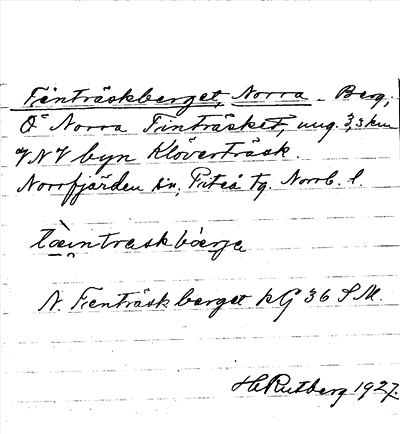 Finträskberget, Norra - Berg,
Ö Norra Finträsket, ung. 3,3 km
VNV byn Klöverträsk.
Norrfjärden sn, Piteå tg. Norrb. l.
N. Finträskberget kG 36 S M.
H Rutberg 1927.